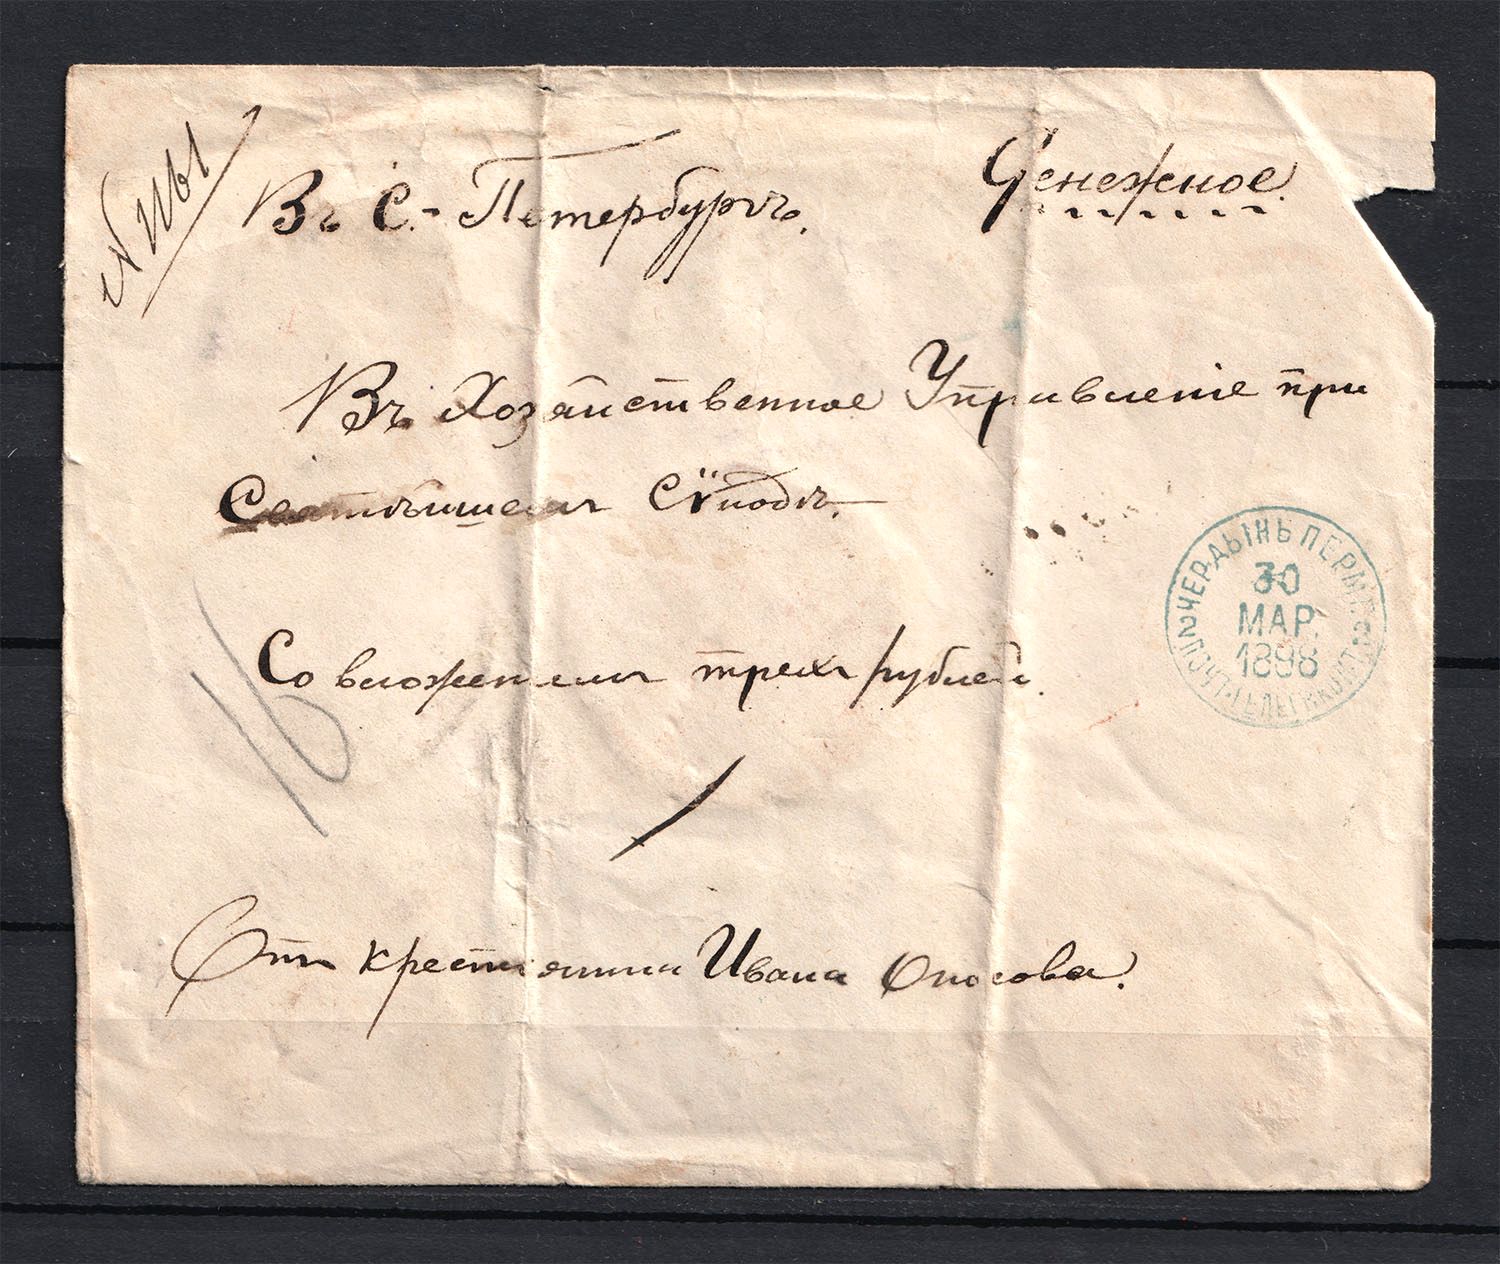 Въ С.-Петербургъ.
Денежное.
Въ Хозяйственное Управленіе при
Святѣйшемъ Сѵнодѣ.
Со вложеніемъ трехъ рублей.
Отъ крестьянина Ивана
16
ЧЕРДЫНЬ ПЕРМ.
30
МАР.
1898